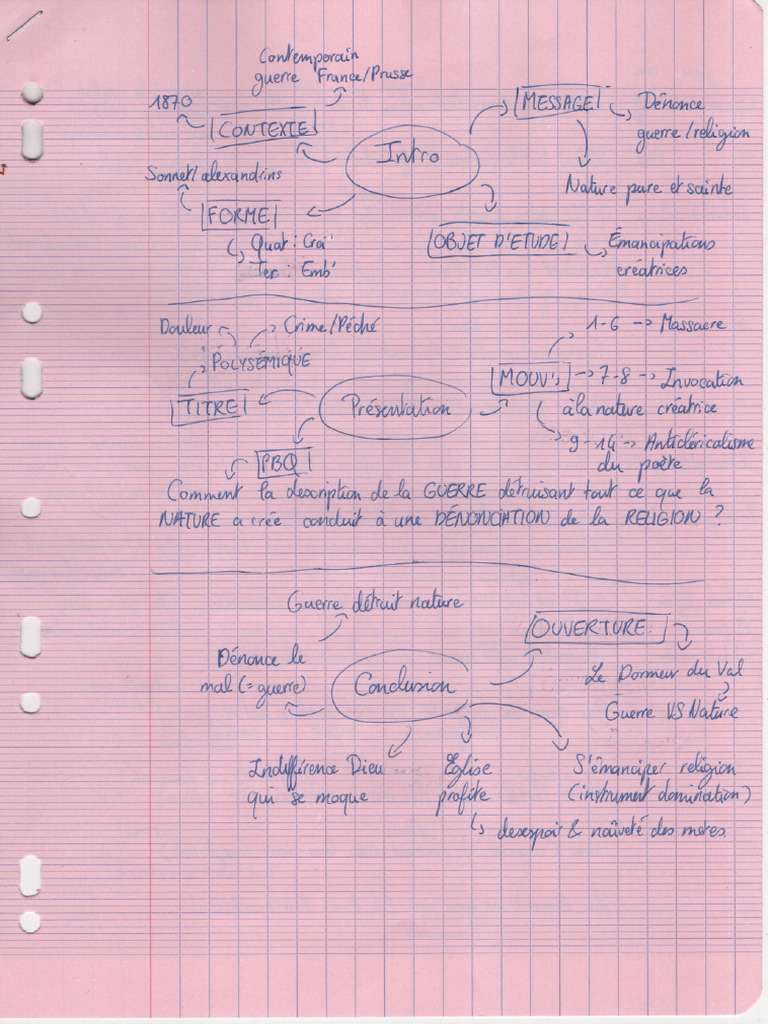 Contemporain
guerre France/Prusse
1870
CONTEXTE
Intro
MESSAGE
Dénonce
guerre/religion
Nature pure et sainte
Sonnet/alexandrins
FORME
Quat: Croi
Ter: Emb
OBJET D'ETUDE
Émancipations
créatrices
Douleur
Crime/Péché
POLYSÉMIQUE
TITRE
Présentation
MOUV
1-6 -> Massacre
-> 7-8 -> Invocation
à la nature créatrice
9-14 -> Anticléricalisme
du poète
PBQ
Comment la description de la GUERRE détruisant tout ce que la
NATURE a créé conduit à une DÉNONCIATION de la RELIGION ?
Guerre détruit nature
Dénonce le
mal (= guerre)
Conclusion
OUVERTURE
Le Dormeur du Val
Guerre VS Nature
Indifférence Dieu
qui se moque
Eglise
profite
S'émanciper religion
(instrument domination)
desespoir & naïveté des mères